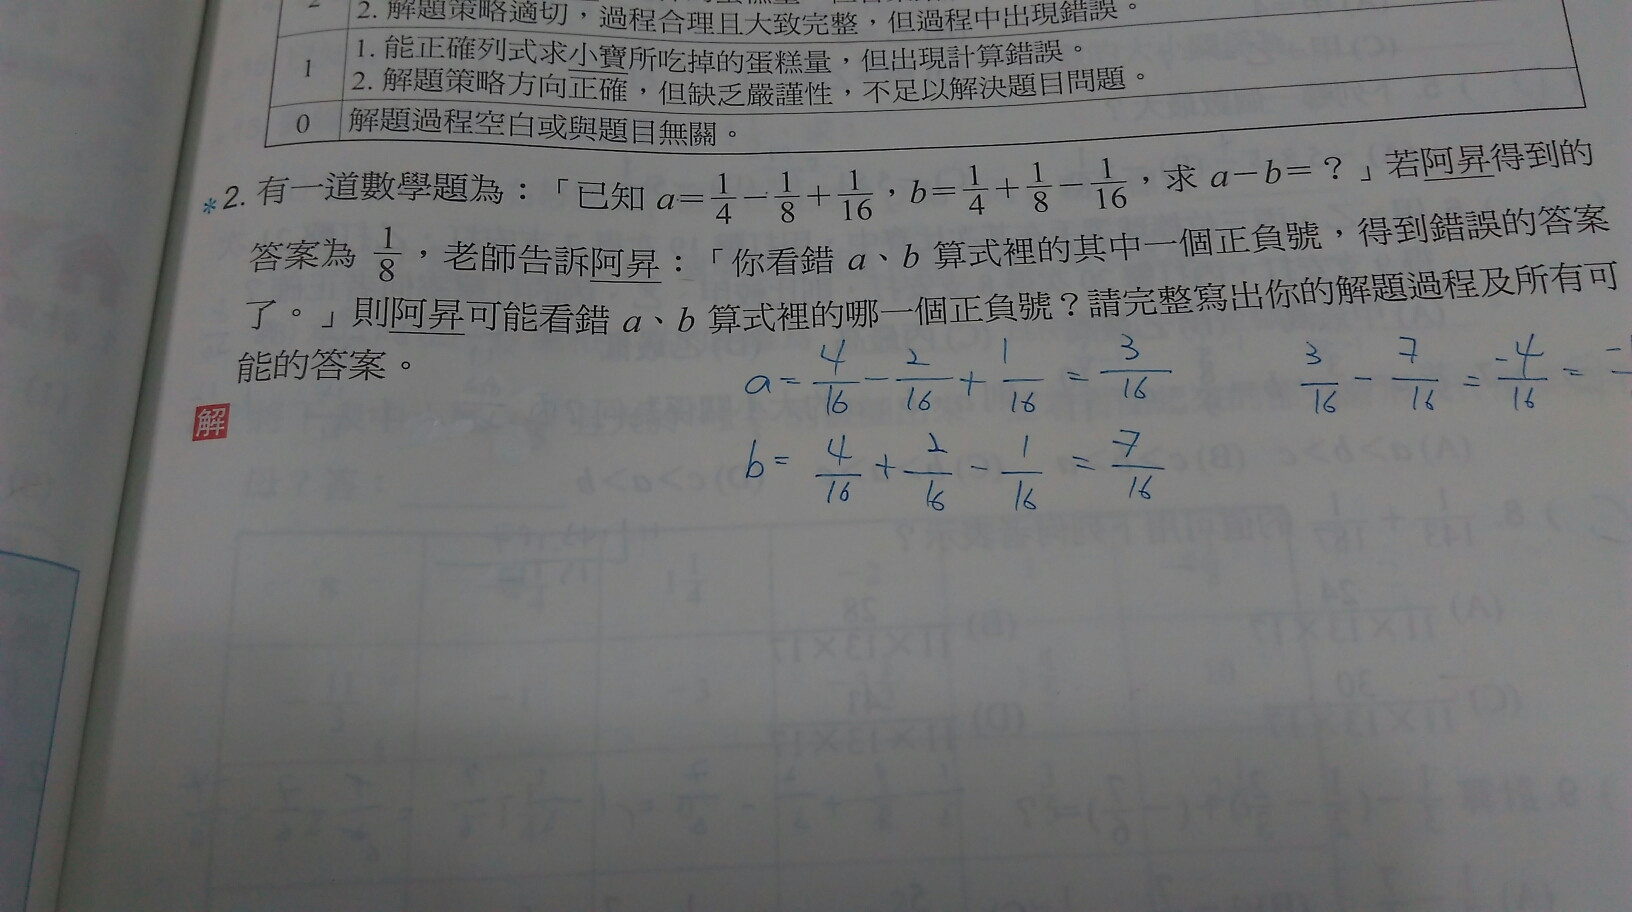 2. 解題策略適切，過程合理且大致完整，但過程中出現錯誤。
1 1. 能正確列式求小寶所吃掉的蛋糕量，但出現計算錯誤。
2. 解題策略方向正確，但缺乏嚴謹性，不足以解決題目問題。
0 解題過程空白或與題目無關。
*2. 有一道數學題為：「已知 a=1/4-1/8+1/16，b=1/4+1/8-1/16，求 a-b=？」若阿昇得到的
答案為 1/8，老師告訴阿昇：「你看錯 a、b 算式裡的其中一個正負號，得到錯誤的答案
了。」則阿昇可能看錯 a、b 算式裡的哪一個正負號？請完整寫出你的解題過程及所有可
能的答案。
解
a= 4/16 - 2/16 + 1/16 = 3/16
3/16 - 7/16 = -4/16 =
b= 4/16 + 2/16 - 1/16 = 7/16